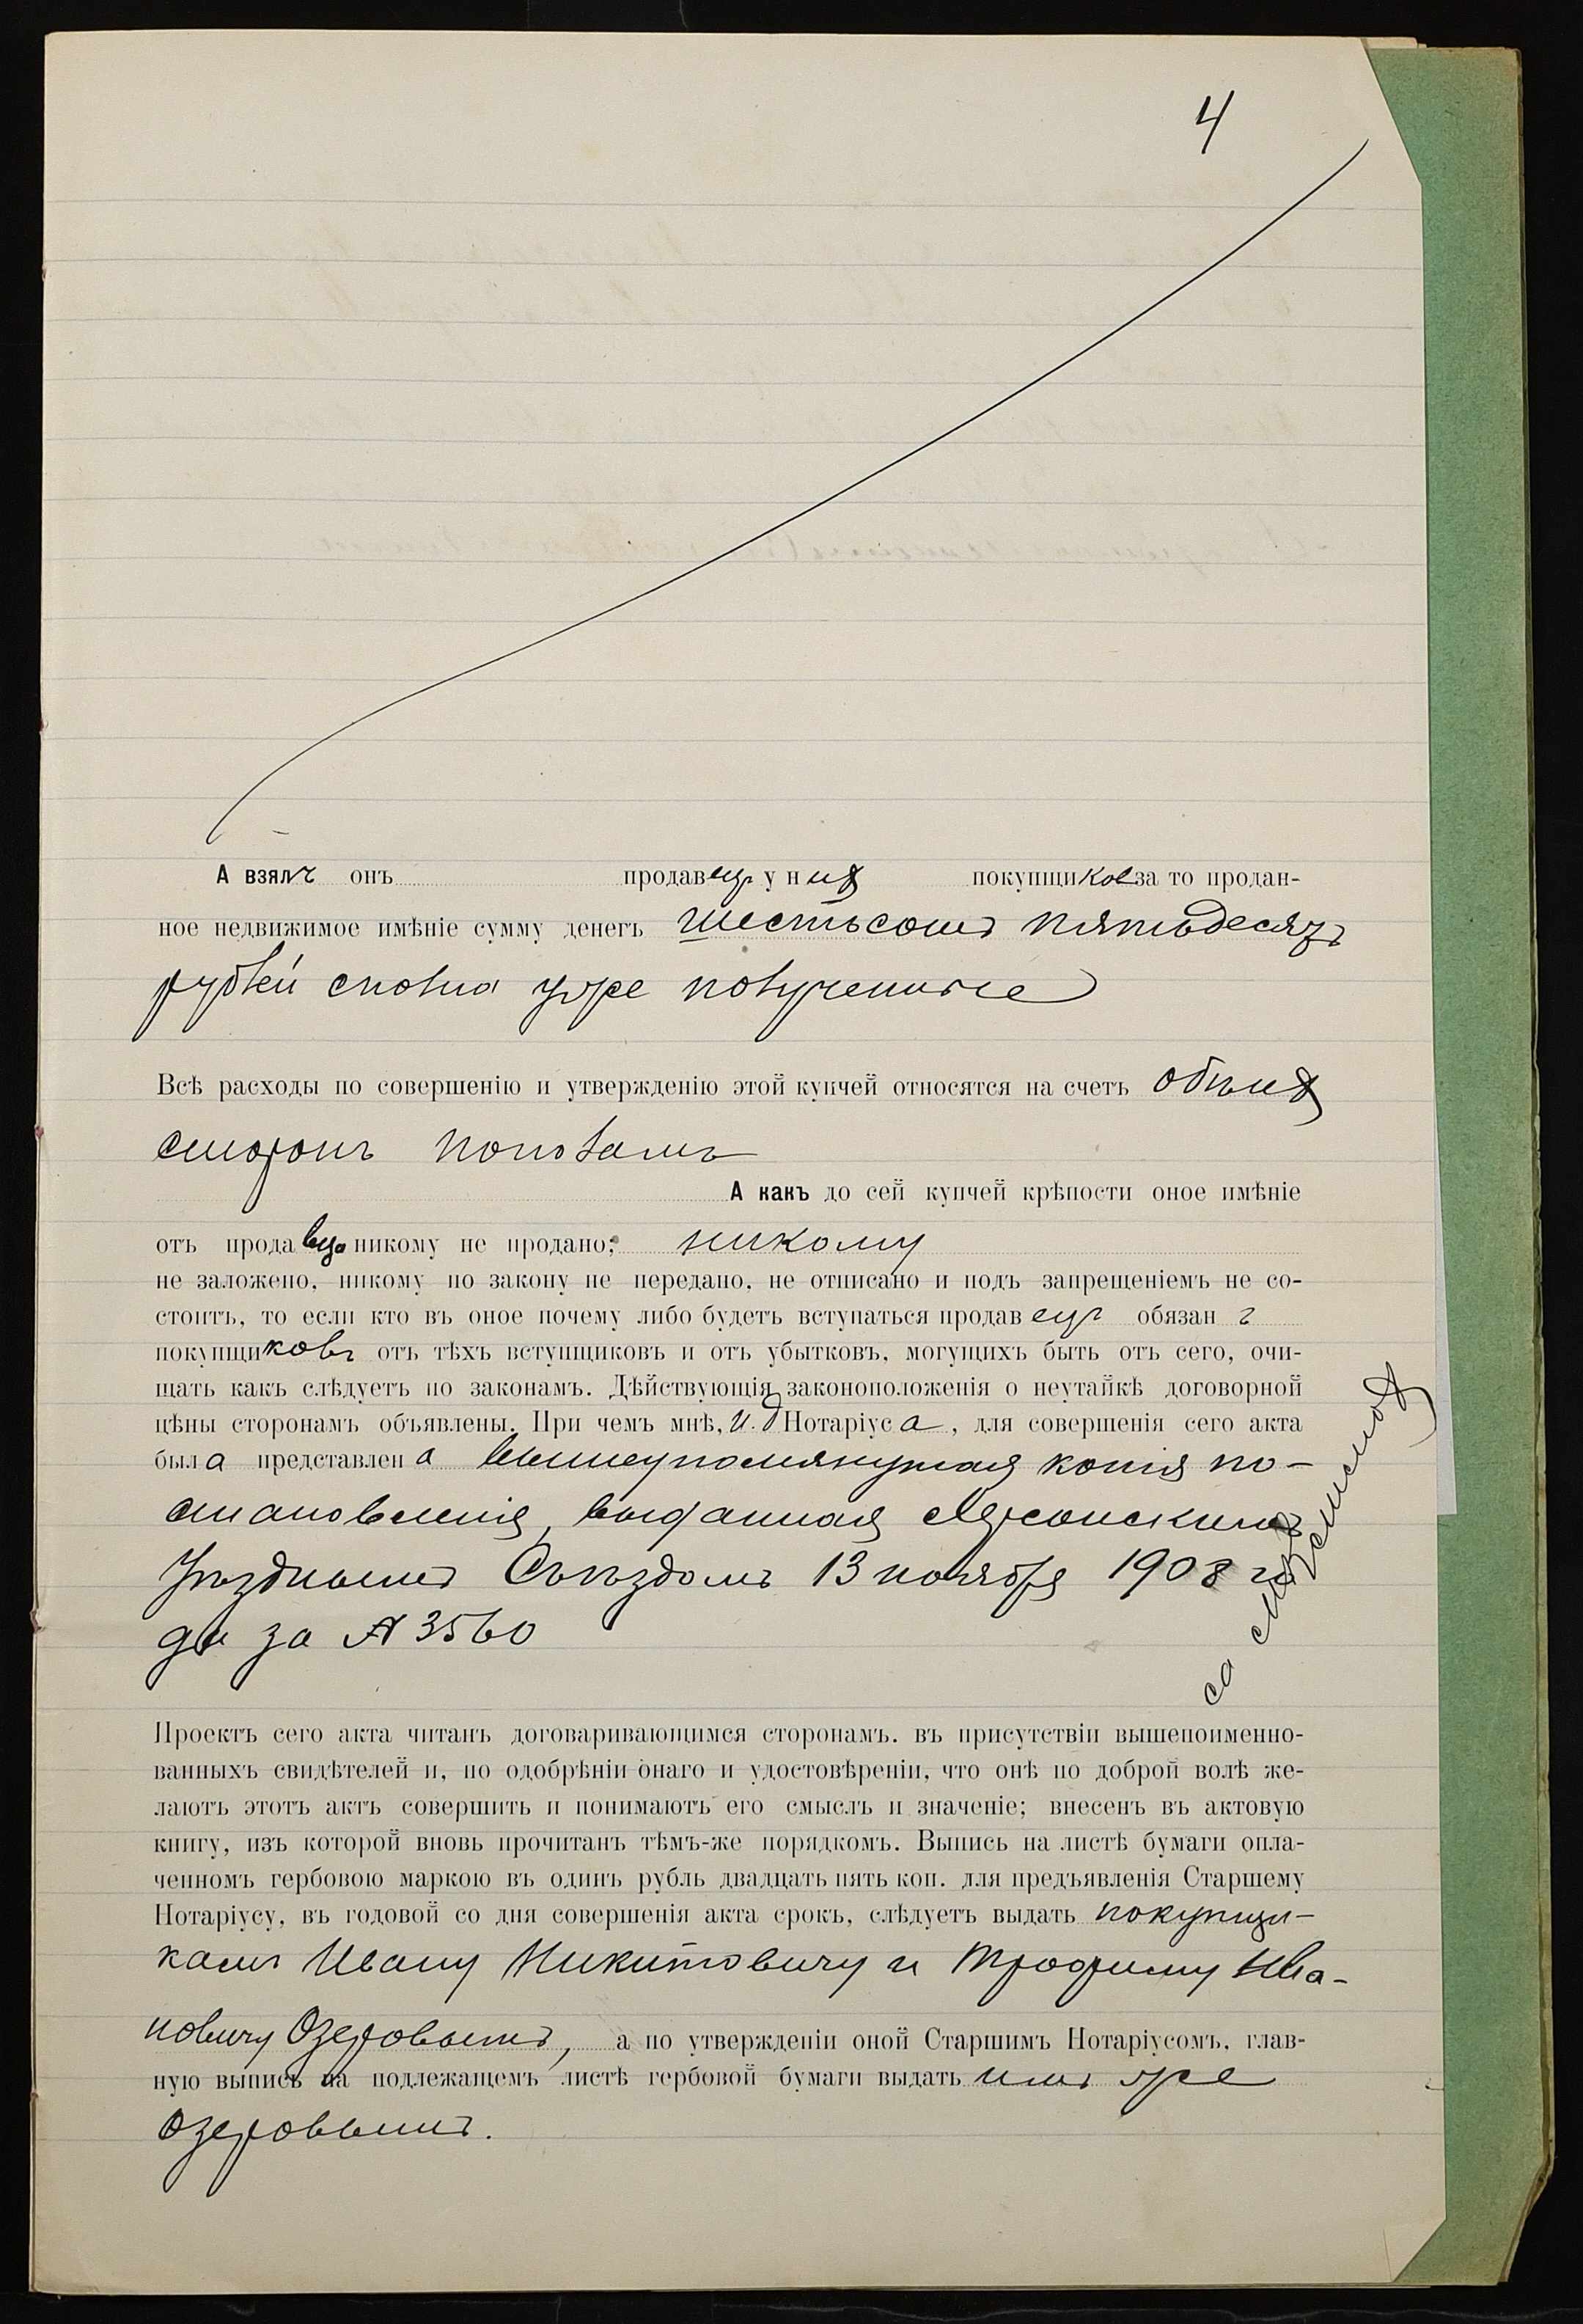 4
А взялъ онъ продавецъ у нихъ покупщиковъ за то продан-
ное недвижимое имѣніе сумму денегъ шестьсотъ пятьдесятъ
рублей сполна уже полученные
Всѣ расходы по совершенію и утвержденію этой купчей относятся на счетъ обѣихъ
сторонъ пополамъ
А какъ до сей купчей крѣпости оное имѣніе
отъ продавца никому не продано; никому
не заложено, никому по закону не передано, не отписано и подъ запрещеніемъ не со-
стоитъ, то если кто въ оное почему либо будетъ вступаться продавецъ обязанъ
покупщиковъ отъ тѣхъ вступщиковъ и отъ убытковъ, могущихъ быть отъ сего, очи-
щать какъ слѣдуетъ по законамъ. Дѣйствующія законоположенія о неутайкѣ договорной
цѣны сторонамъ объявлены. При чемъ мнѣ, И. д. Нотаріуса, для совершенія сего акта
была представлена вышеупомянутая копія по-
становленія, выданная Херсонскимъ
Уѣзднымъ Съѣздомъ 13 ноября 1908 го
да за № 3560
Проектъ сего акта читанъ договаривающимся сторонамъ. въ присутствіи вышепоименно-
ванныхъ свидѣтелей и, по одобрѣніи онаго и удостовѣреніи, что онѣ по доброй волѣ же-
лаютъ этотъ актъ совершить и понимаютъ его смыслъ и значеніе; внесенъ въ актовую
книгу, изъ которой вновь прочитанъ тѣмъ-же порядкомъ. Выпись на листѣ бумаги опла-
ченномъ гербовою маркою въ одинъ рубль двадцать пять коп. для предъявленія Старшему
Нотаріусу, въ годовой со дня совершенія акта срокъ, слѣдуетъ выдать покупщи-
камъ Ивану Никитовичу и Трофиму Ива-
новичу Озеровымъ, а по утвержденіи оной Старшимъ Нотаріусомъ, глав-
ную выпись на подлежащемъ листѣ гербовой бумаги выдать имъ же
Озеровымъ.